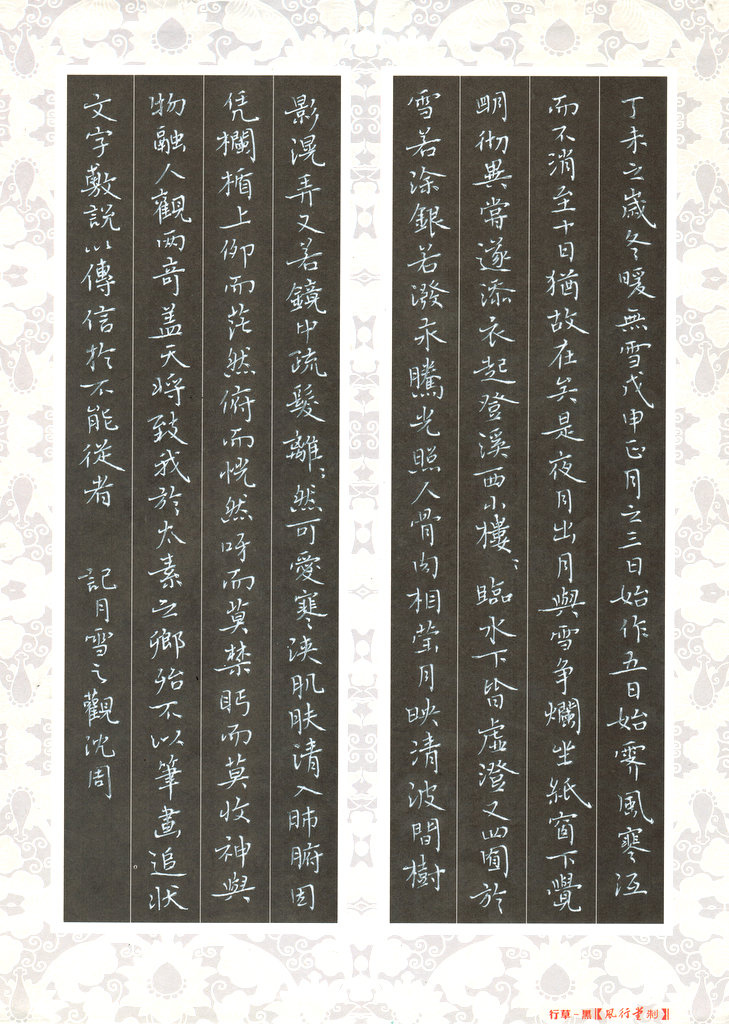 丁未之歲冬暖無雪戊申正月之三日始作五日始霽風寒冱
而不消至十日猶故在矣是夜月出月與雪爭爛坐紙窗下覺
明彻異常遂添衣起登溪西小樓〻臨水下皆虛澄又四囿於
雪若涂銀若潑汞騰光照人骨肉相瑩月映清波間樹
影滉弄又若鏡中疏髮離〻然可愛寒浹肌膚清入肺腑因
凭欄楯上仰而茫然俯而恍然呀而莫禁眄而莫收神與
物融人觀兩奇盖天將致我於太素之鄉殆不以筆畫追狀
文字敷說以傳信於不能從者 記月雪之觀沈周
行草-黑【风行制】